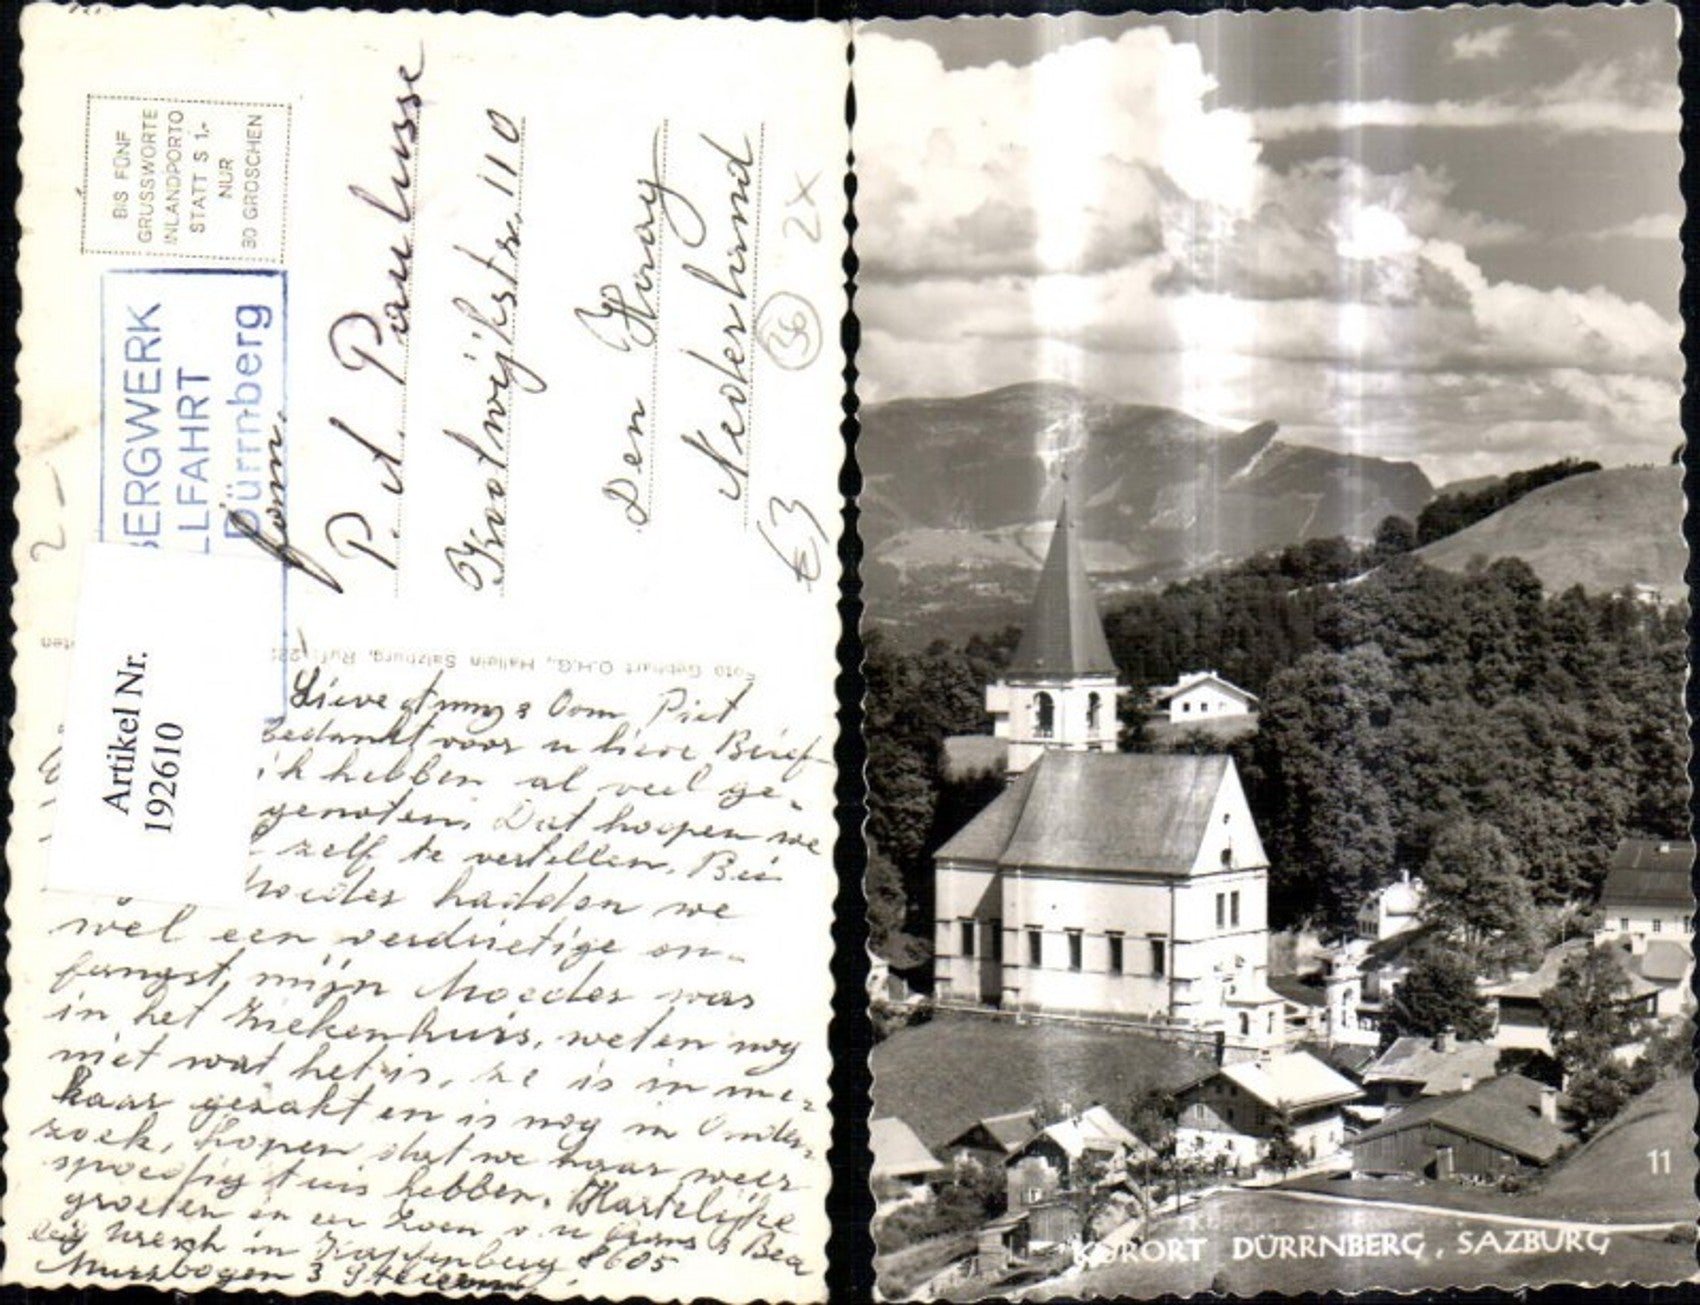 BIS FÜNF
GRUSSWORTE
INLANDPORTO
STATT S 1,-
NUR
30 GROSCHEN
BERGWERK
LLFAHRT
Dürrnberg
fam.
P. A. Paulusse
Katwijkstr. 110
Den Haag
Nederland
2x
36
€3
2-
Artikel Nr.
192610
Foto Gebhart O.H.G., Hallein Salzburg, Ruf: 22
Lieve Oom Piet
Bedankt voor u lieve Brief
ik hebben al veel ge-
genoten. Dat hoopen we
zelf te vertellen. Bei
Moeder hadden we
wel een verdrietige on-
fangst, mijn Moeder was
in het Ziekenhuis, weten nog
niet wat het is, ze is in me-
kaar gezakt en is nog in Onder-
zoek, hopen dat we haar weer
spoedig tuis hebben. Hartelijke
groeten en een Zoen v. u Frans & Bea
in Kapfenberg 8605
3
11
KURORT DÜRRNBERG, SAZBURG